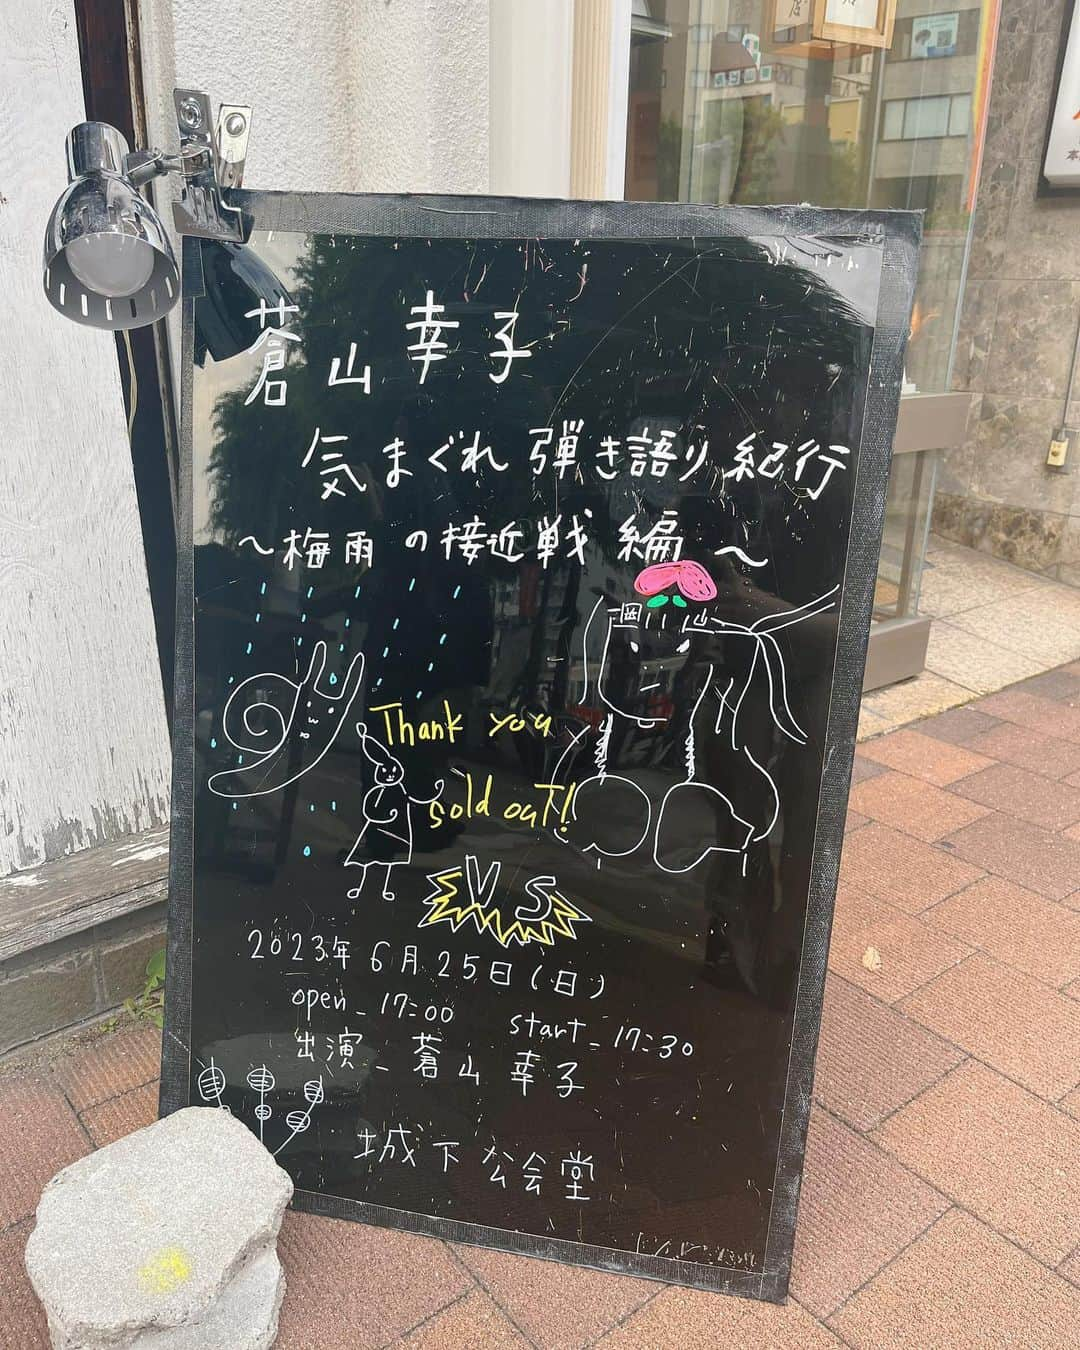 蒼山 幸子
気まぐれ 弾き語り 紀行
〜梅雨の接近戦 編〜
岡 山
Thank you
sold out!
VS
2023年 6月 25日(日)
open_17:00 start_17:30
出演_蒼山 幸子
城下公会堂